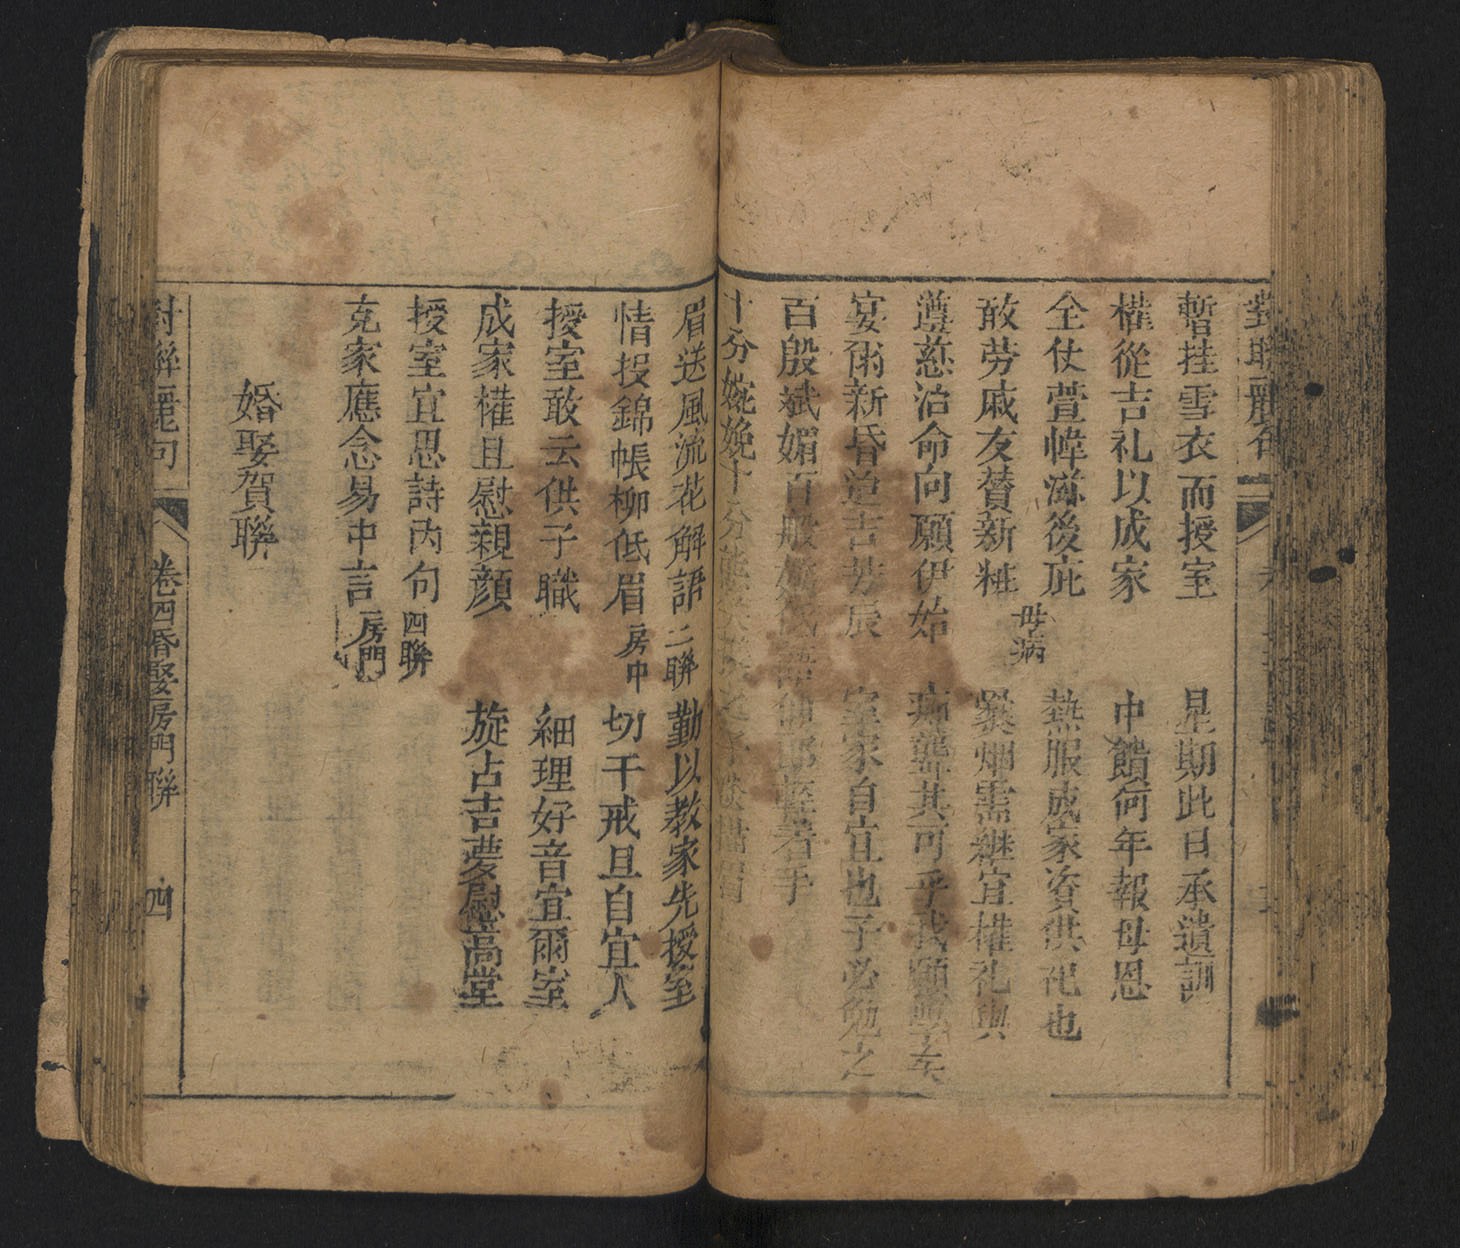 對聯麗句
暫挂雪衣而授室 星期此日承遺訓
權從吉礼以成家 中饋何年報母恩
全仗萱幃綿後庇 熱服成家資供祀也
敢劳戚友賛新粧 母病 爨烟需継宜權礼與
遵慈治命向願伊始 痛聾其可乎我願
宴爾新昏迨吉芳辰 室家自宜也子必勉之
百般斌媚百般
十分婉娩十分
眉送風流花解語 二聯 勤以教家先授室
情投錦帳柳低眉 房中 切干戒旦自宜人
授室敢云供子職 細理好音宜爾室
成家權且慰親顔 旋占吉夢慰高堂
授室宜思詩内句 四聯
克家應念易中言 房門
婚娶賀聯
對聯麗句 卷四婚娶房門聯 四